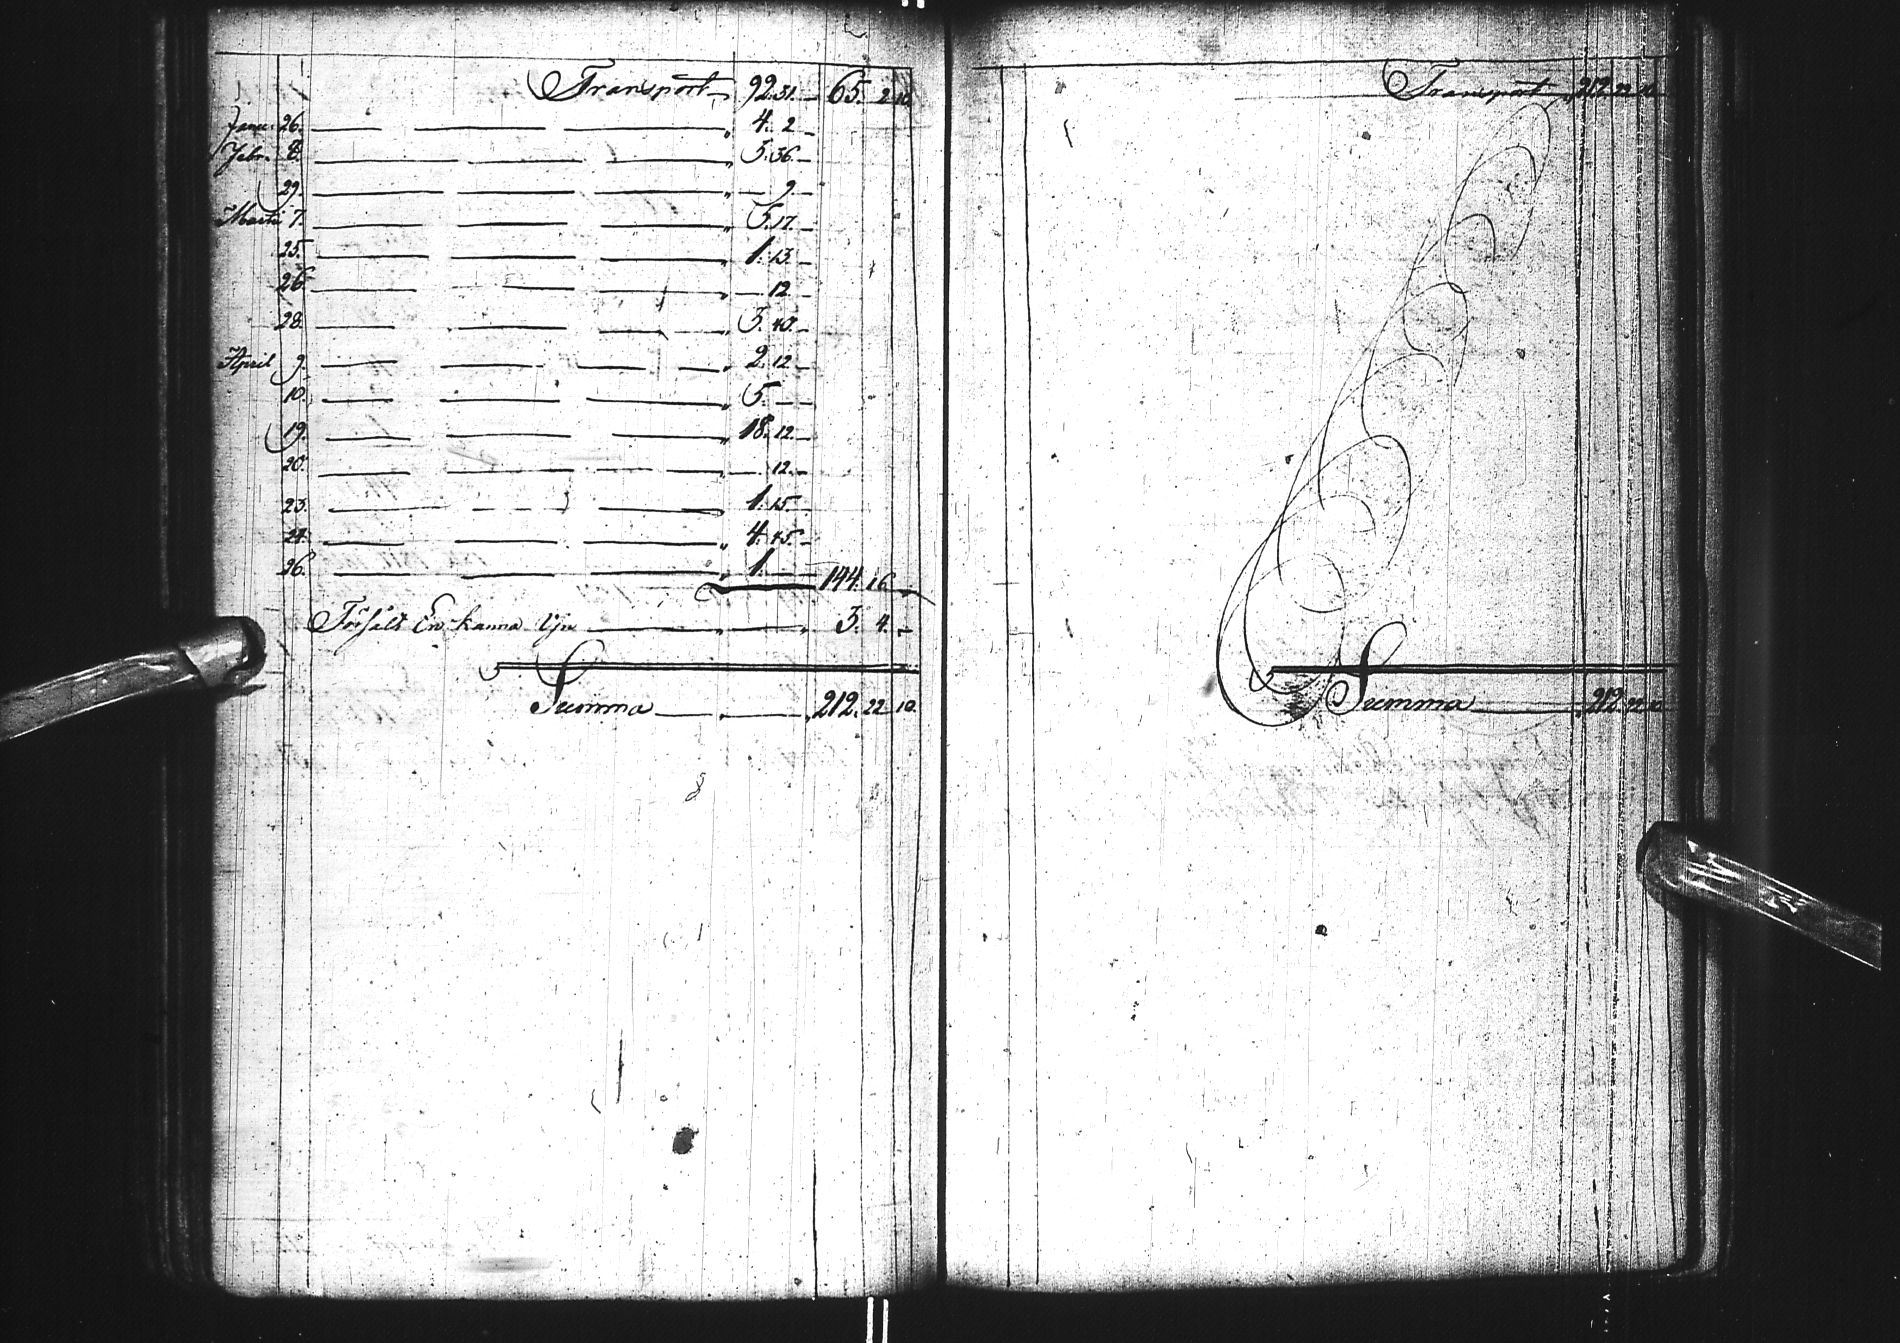 Transport 92. 31. 65. 2. 10.
Janu: 26. 4. 2
Febr. 8. 3. 36.
29. 9.
Martii 7. 5. 17.
25. 1. 13.
26 12.
28. 3. 40.
April 9. 2. 12.
10. 5.
19. 18. 12.
20. 12.
23. 1. 15.
24. 4. 45.
26. 1. 144. 16
Försålt En kanna 3. 4.
Summa 212. 22. 10.
Transport 212. 22. 10.
Summa 212. 22. 10.